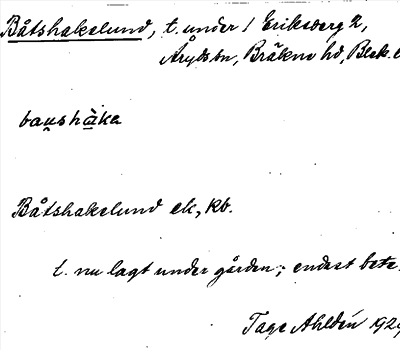 Båtshakelund, t. under 1 Eriksberg 2,
Åryds sn, Bräkne hd, Blek.
baushàka
Båtshakelund ek, kb.
t. nu lagt under gården; endast bete.
Tage Ahldén 192